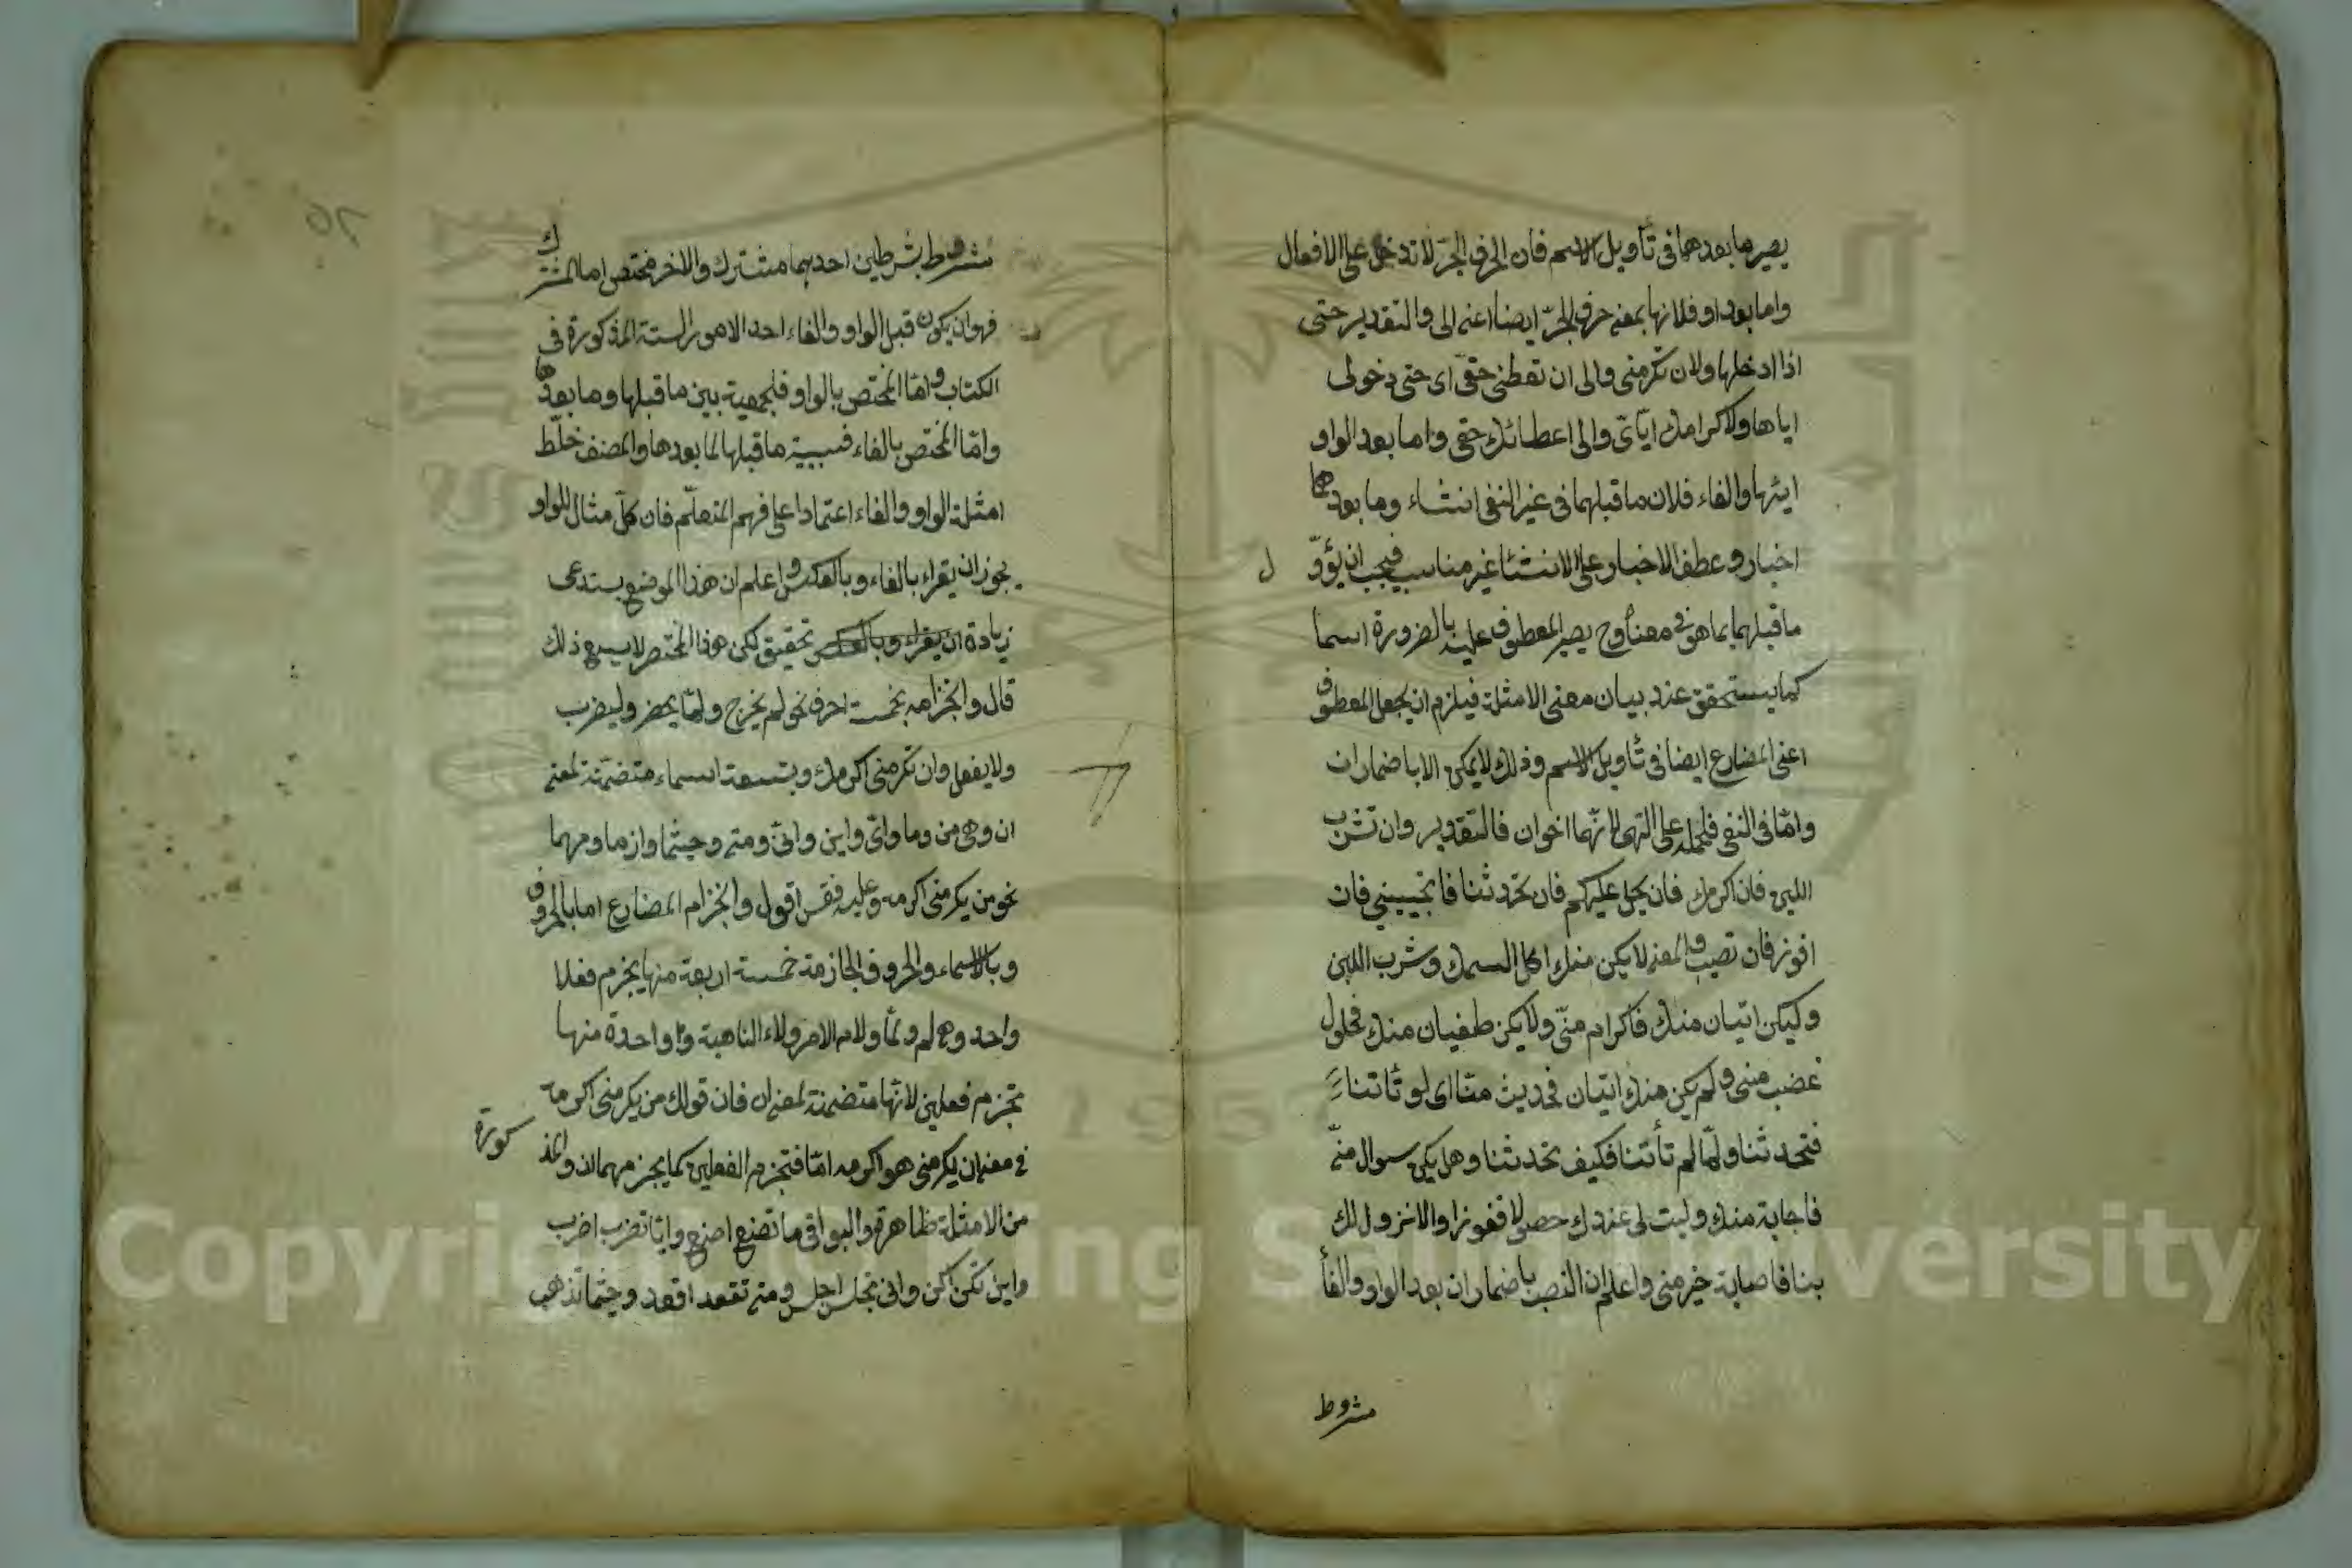 يصير ما بعدهما فى تأويل الاسم فان الحرف الجرّ لا تدخل على الافعال
واما بعد او فلانها بمعنى حرف الجرّ ايضا اعنى الى والتقدير حتى
اذا ادخلها ولان تكرمنى والى ان تعطنى حقى اى حتى دخولى
اياها ولاكرامك ايّاى والى اعطائك حقى واما بعد الواو
ايتها والفاء فلان ما قبلهما فى غير النفى انشاء وما بعدهما
اخبار وعطف الاخبار على الانشئا غير مناسب فيجب ان يؤوّل
ما قبلهما بما هو فى معناه وح يصير المعطوف عليه بالضرورة اسما
كما يستحقق عند بيان معنى الامثلة فيلزم ان يجعل المعطوف
اعنى المضارع ايضا فى تأويل الاسم وذلك لا يمكن الا باضمار ان
وامّا فى النفى فلحمله على النهى لانّهما اخوان فالتقدير وان تشرب
اللبن فان اكرمك فان يحل عليكم فان تحدثنا فان تجيبينى فان
افوز فان تصيب والمعنى لا يكن منك اكل السمك وشرب اللبن
وليكن اتيان منك فاكرام منّى ولا يكن طغيان منك فحلول
غضب منى ولم يكن منك اتيان فحديث منا اى لو تاتنا
فتحدثنا ولمّا لم تأتنا فكيف تحدثنا وهل يكن سوال منّى
فاجابة منك وليت لى عندك حصولا ففوزا والا نزول لك
بنا فاصابة خير منى واعلم ان النصب باضمار ان بعد الواو والفأ
مشروط
مشروط بشرطين احديهما مشترك والاخر مختص اما المشترك
فهو ان يكون قبل الواو والفاء احد الامور الستة المذكورة فى
الكتاب وامّا المختص بالواو فلجمعية بين ما قبلها وما بعدها
وامّا المختص بالفاء فسببية ما قبلها لما بعدها والمصنف خلّط
امثلة الواو والفاء اعتمادا على فهم المتعلّم فان كلّ مثال للواو
يجوز ان يقراء بالفاء وبالعكس واعلم ان هذا الموضع يستدعى
زيادة ان يقراء وبالعكس تحقيق لكن هذا المختصر لا يسع ذلك
قال وانجزامه بخمسة احرف نحو لم يخرج ولمّا يحضر وليضرب
ولا يفعل وان تكرمنى اكرمك وبتسعة اسماء متضمّنة لمعنى
ان وهى من وما واىّ واين وانىّ ومتى وحيثما واذ ما ومهما
نحو من يكرمنى اكرمه وعليه فقس اقول وانجزام المضارع اما بالحروف
وبالاسماء والحروف الجازمة خمسة اربعة منها يجزم فعلا
واحد وهى لم ولمّا ولام الامر ولاء الناهية و واحدة منها
تجزم فعلين لانّها متضمنة لمعنى ان فان قولك من يكرمنى اكرمه
فى معنى ان يكرمنى هو اكرمه امّا فتجزم الفعلين كما يجزمهما ان والمذكورة
من الامثلة ظاهرة والبواقى ما تصنع اصنع وايّا تضرب اضرب
واين تكن اكن وانى تجلس اجلس ومتى تقعد اقعد وحيثما تذهب